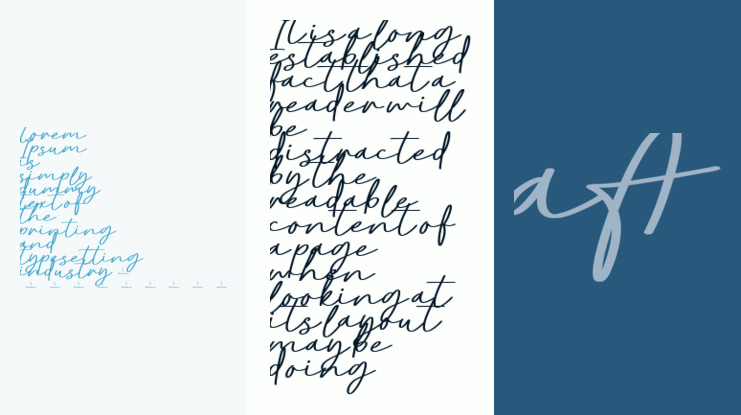 Lorem
Ipsum
is
simply
dummy
text of
the
printing
and
typesetting
industry
It is a long
established
fact that a
reader will
be
distracted
by the
readable
content of
a page
when
looking at
its layout
may be
doing
aft